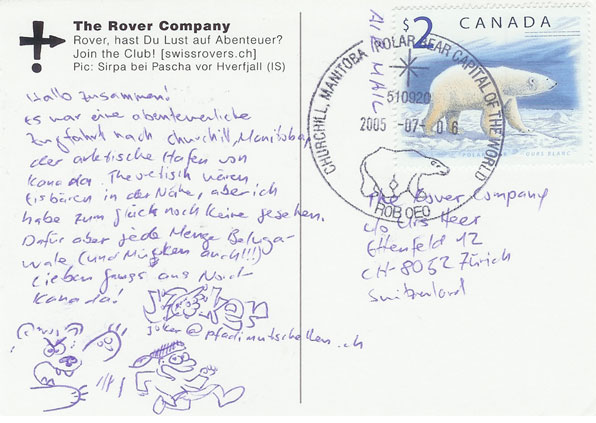 The Rover Company
Rover, hast Du Lust auf Abenteuer?
Join the Club! [swissrovers.ch]
Pic: Sirpa bei Pascha vor Hverfjall (IS)
Hallo zusammen!
Es war eine abenteuerliche
Zugfahrt nach Churchill, Manitoba,
der arktische Hafen von
Kanada. Theoretisch wären
Eisbären in der Nähe, aber ich
habe zum glück noch keine gesehen.
Dafür aber jede Menge Beluga-
wale (und Mücken auch!!!)
Lieben Gruss aus Nord-
Kanada!
Joker
joker@pfadimutschellen.ch
AIR MAIL
$2 CANADA
POLAR BEAR OURS BLANC
CHURCHILL, MANITOBA POLAR BEAR CAPITAL OF THE WORLD
510920
2005-07-06
R0B 0E0
The Rover Company
c/o Urs Heer
Ettenfeld 12
CH-8052 Zürich
Switzerland